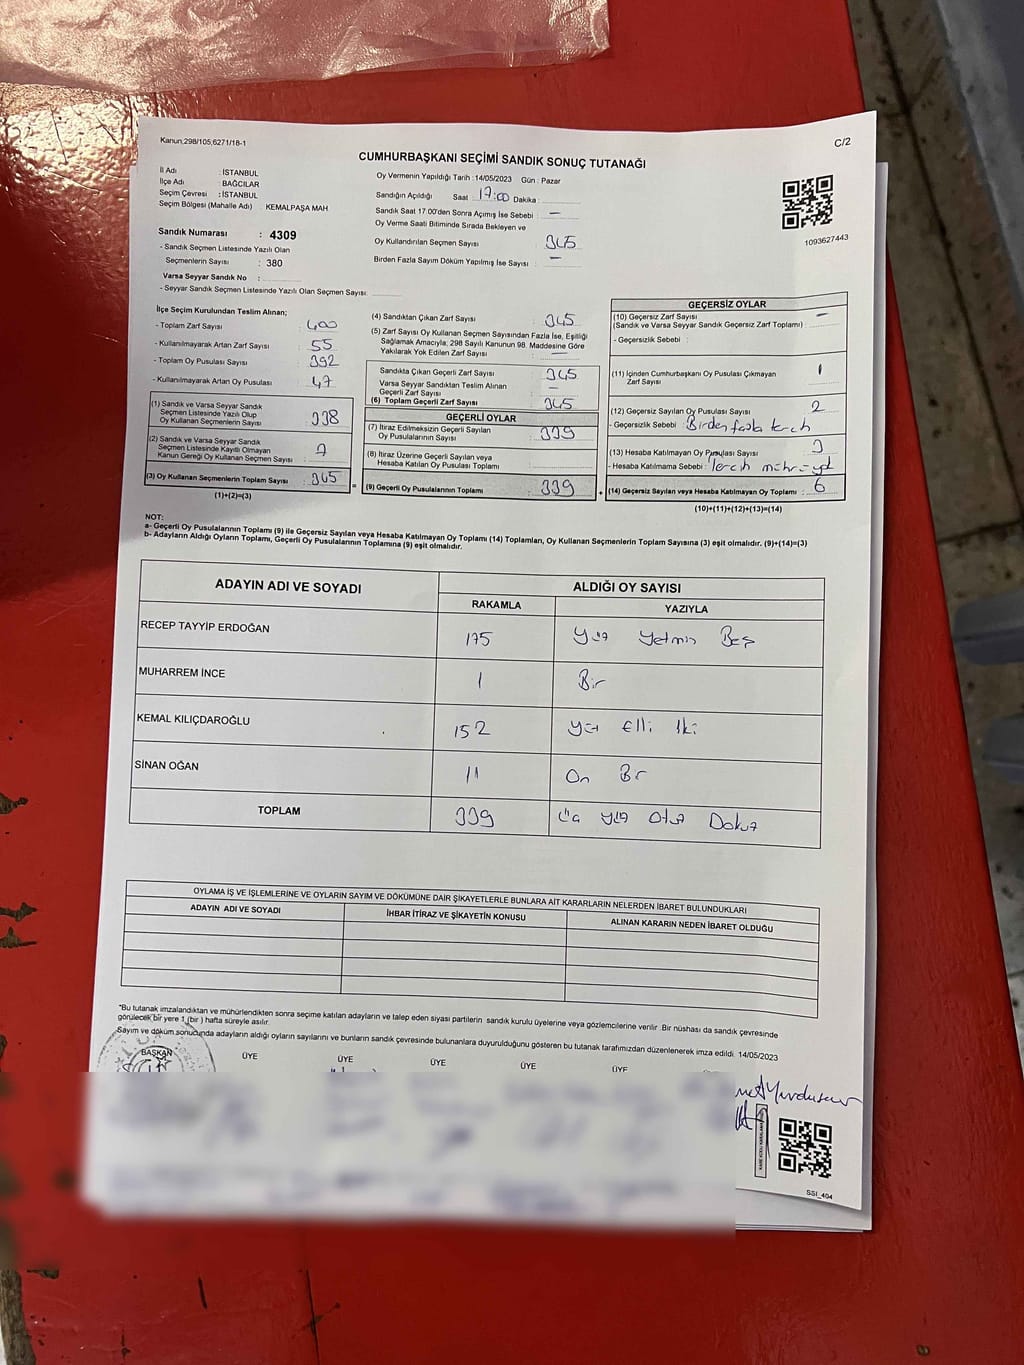 Kanun;298/105;6271/18-1
C/2
CUMHURBAŞKANI SEÇİMİ SANDIK SONUÇ TUTANAĞI
İl Adı : İSTANBUL
İlçe Adı : BAĞCILAR
Seçim Çevresi : İSTANBUL
Seçim Bölgesi (Mahalle Adı) : KEMALPAŞA MAH
Sandık Numarası : 4309
- Sandık Seçmen Listesinde Yazılı Olan
Seçmenlerin Sayısı : 380
Varsa Seyyar Sandık No :
- Seyyar Sandık Seçmen Listesinde Yazılı Olan Seçmen Sayısı:
Oy Vermenin Yapıldığı Tarih : 14/05/2023 Gün : Pazar
Sandığın Açıldığı Saat : 17:00 Dakika :
Sandık Saat 17.00'den Sonra Açımış İse Sebebi : -
Oy Verme Saati Bitiminde Sırada Bekleyen ve
Oy Kullandırılan Seçmen Sayısı : 345
Birden Fazla Sayım Döküm Yapılmış İse Sayısı : -
1093627443
İlçe Seçim Kurulundan Teslim Alınan;
- Toplam Zarf Sayısı : 400
- Kullanılmayarak Artan Zarf Sayısı : 55
- Toplam Oy Pusulası Sayısı : 392
- Kullanılmayarak Artan Oy Pusulası : 47
(1) Sandık ve Varsa Seyyar Sandık
Seçmen Listesinde Yazılı Olup
Oy Kullanan Seçmenlerin Sayısı : 338
(2) Sandık ve Varsa Seyyar Sandık
Seçmen Listesinde Kayıtlı Olmayan
Kanun Gereği Oy Kullanan Seçmen Sayısı : 7
(3) Oy Kullanan Seçmenlerin Toplam Sayısı : 345
(1)+(2)=(3)
(4) Sandıktan Çıkan Zarf Sayısı : 345
(5) Zarf Sayısı Oy Kullanan Seçmen Sayısından Fazla İse, Eşitliği
Sağlamak Amacıyla; 298 Sayılı Kanunun 98. Maddesine Göre
Yakılarak Yok Edilen Zarf Sayısı : -
Sandıkta Çıkan Geçerli Zarf Sayısı : 345
Varsa Seyyar Sandıktan Teslim Alınan
Geçerli Zarf Sayısı : -
(6) Toplam Geçerli Zarf Sayısı : 345
GEÇERLİ OYLAR
(7) İtiraz Edilmeksizin Geçerli Sayılan
Oy Pusulalarının Sayısı : 339
(8) İtiraz Üzerine Geçerli Sayılan veya
Hesaba Katılan Oy Pusulası Toplamı :
= (9) Geçerli Oy Pusulalarının Toplamı : 339
GEÇERSİZ OYLAR
(10) Geçersiz Zarf Sayısı : -
(Sandık ve Varsa Seyyar Sandık Geçersiz Zarf Toplamı)
- Geçersizlik Sebebi :
(11) İçinden Cumhurbaşkanı Oy Pusulası Çıkmayan
Zarf Sayısı : 1
(12) Geçersiz Sayılan Oy Pusulası Sayısı : 2
- Geçersizlik Sebebi : Birden fazla tercih
(13) Hesaba Katılmayan Oy Pusulası Sayısı : 3
- Hesaba Katılmama Sebebi : Tercih
+ (14) Geçersiz Sayılan veya Hesaba Katılmayan Oy Toplamı : 6
(10)+(11)+(12)+(13)=(14)
NOT:
a- Geçerli Oy Pusulalarının Toplamı (9) ile Geçersiz Sayılan veya Hesaba Katılmayan Oy Toplamı (14) Toplamları, Oy Kullanan Seçmenlerin Toplam Sayısına (3) eşit olmalıdır. (9)+(14)=(3)
b- Adayların Aldığı Oyların Toplamı, Geçerli Oy Pusulalarının Toplamına (9) eşit olmalıdır.
ADAYIN ADI VE SOYADI ALDIĞI OY SAYISI
RAKAMLA YAZIYLA
RECEP TAYYİP ERDOĞAN 175 Yüz Yetmiş Beş
MUHARREM İNCE 1 Bir
KEMAL KILIÇDAROĞLU 152 Yüz Elli İki
SİNAN OĞAN 11 On Bir
TOPLAM 339 Üç Yüz Otuz Dokuz
OYLAMA İŞ VE İŞLEMLERİNE VE OYLARIN SAYIM VE DÖKÜMÜNE DAİR ŞİKAYETLERLE BUNLARA AİT KARARLARIN NELERDEN İBARET BULUNDUKLARI
ADAYIN ADI VE SOYADI İHBAR İTİRAZ VE ŞİKAYETİN KONUSU ALINAN KARARIN NEDEN İBARET OLDUĞU
"Bu tutanak imzalandıktan ve mühürlendikten sonra seçime katılan adayların ve talep eden siyasi partilerin sandık kurulu üyelerine veya gözlemcilerine verilir. Bir nüshası da sandık çevresinde
görülecek bir yere 1 (bir ) hafta süreyle asılır.
Sayım ve döküm sonucunda adayların aldığı oyların sayılarını ve bunların sandık çevresinde bulunanlara duyurulduğunu gösteren bu tutanak tarafımızdan düzenlenerek imza edildi. 14/05/2023
BAŞKAN ÜYE ÜYE ÜYE ÜYE ÜYE
SSI_404